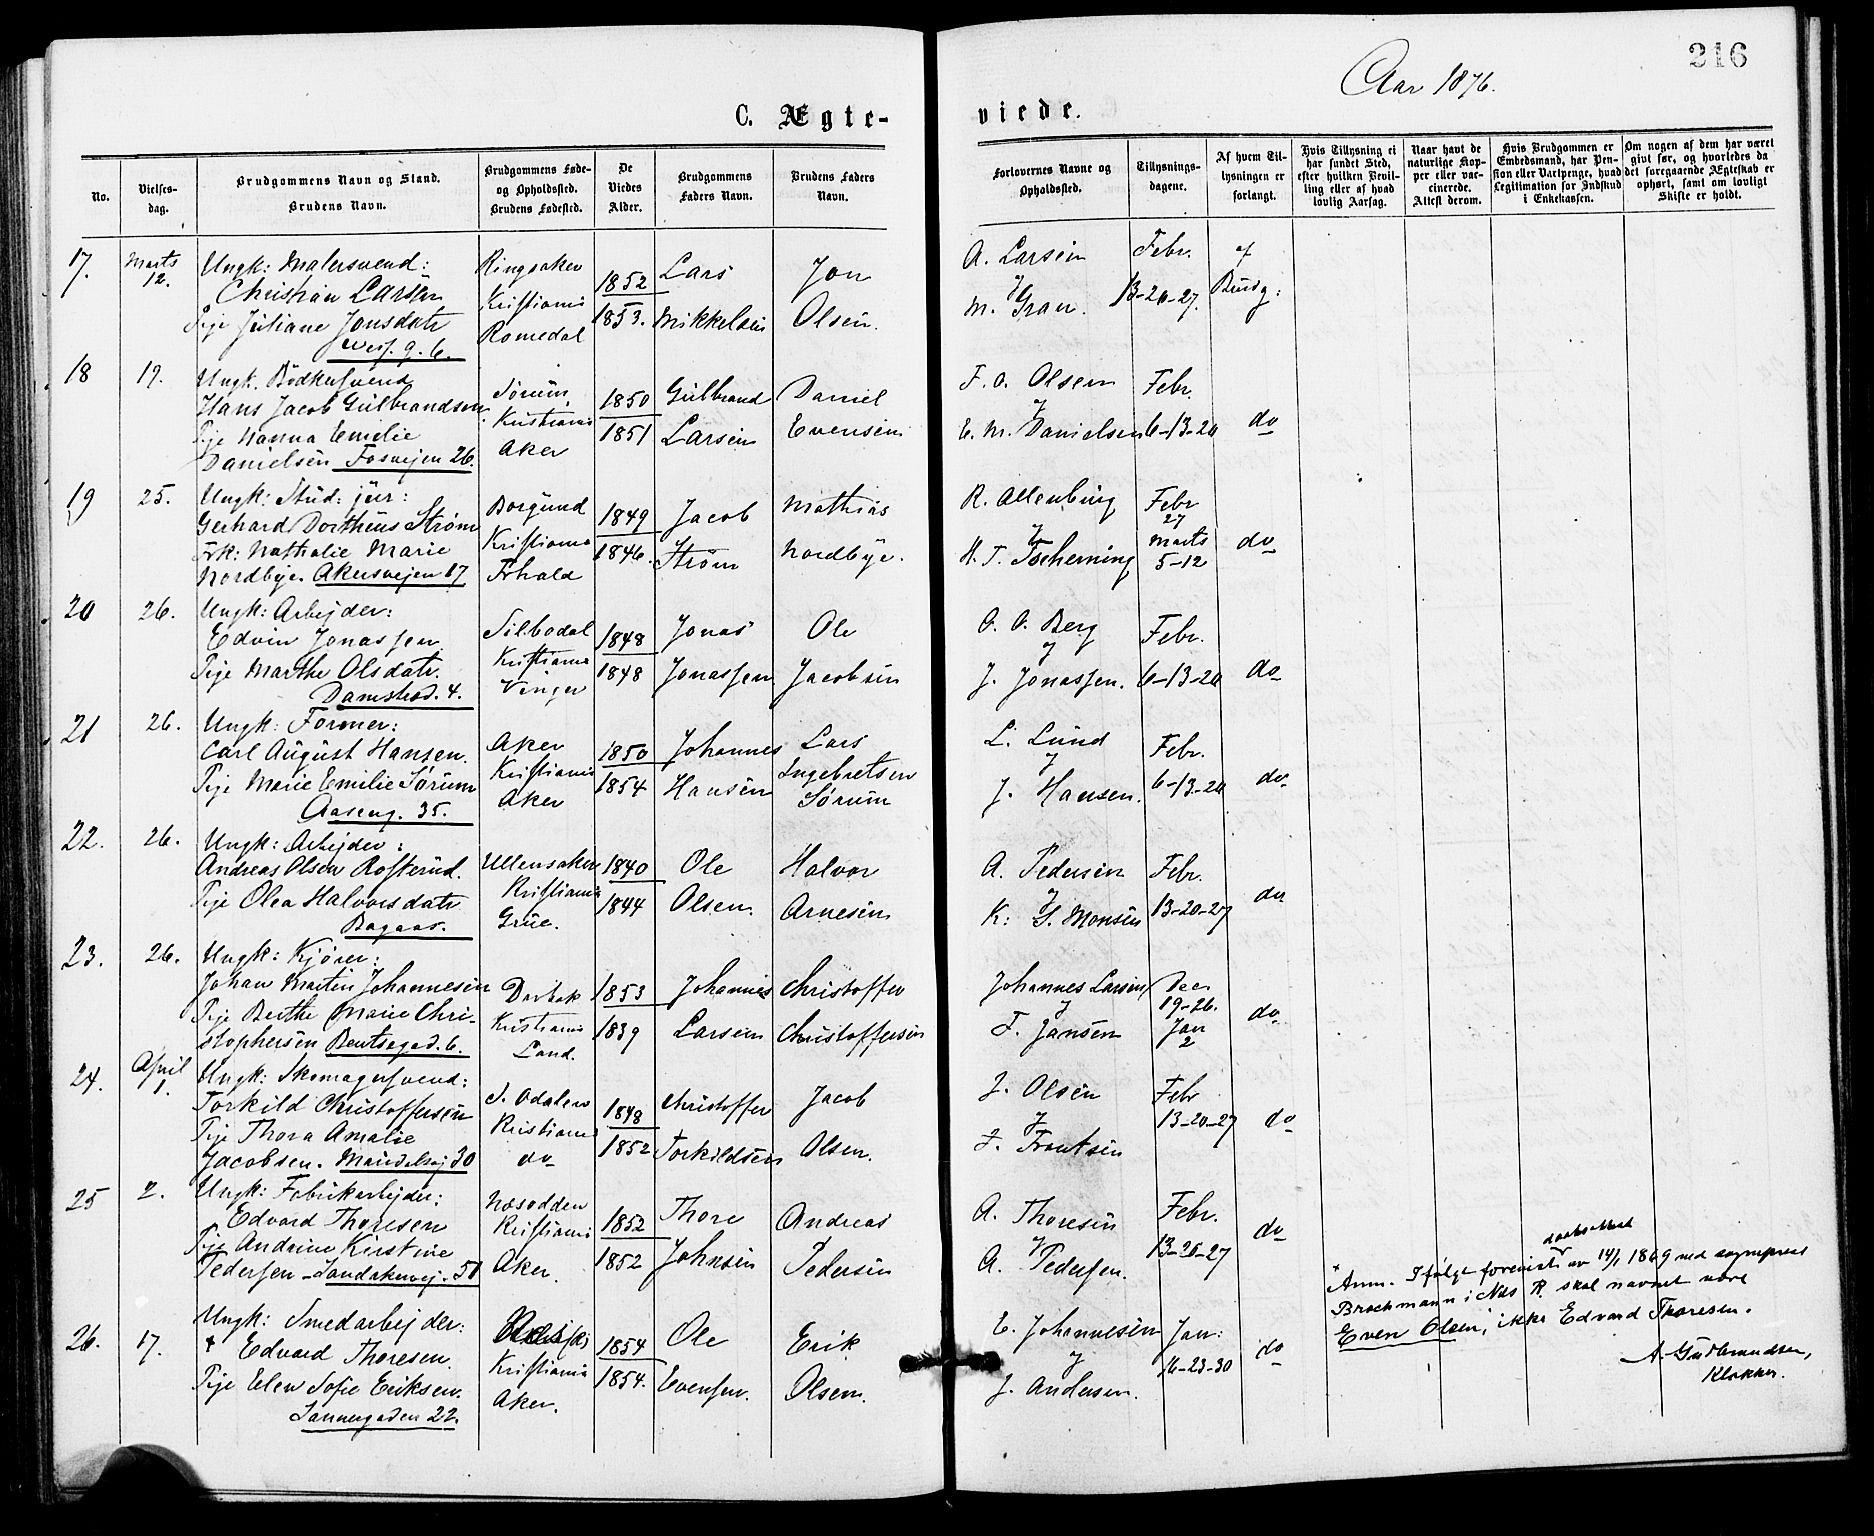 216
Aar 1876.
C. Ægte-
viede.
No.
Vielses-
dag.
Brudgommens Navn og Stand.
Brudens Navn.
Brudgommens Føde-
og Opholdssted.
Brudens Fødested.
De
Viedes
Alder.
Brudgommens
Faders Navn.
Brudens Faders
Navn.
Forlovernes Navne og
Opholdssted.
Tillysnings-
dagene.
Af hvem Til-
lysningen er
forlangt.
Hvis Tillysning ei
har fundet Sted,
efter hvilken Bevil-
ling eller af hvad
lovlig Aarsag.
Naar havt de
naturlige Kop-
per eller vac-
cinerede.
Attest derom.
Hvis Brudgommen er
Embedsmand, har Pen-
sion eller Vartpenge, hvad
Legitimation for Indskud
i Enkekassen.
Om nogen af dem har været
gift før, og hvorledes da
det foregaaende Ægteskab er
ophørt, samt om lovligt
Skifte er holdt.
17. Marts 12. Ungk: Malersvend:
Christian Larsen
Pige Juliane Jonsdatr
9. 6.
Ringsaker
Kristiania
Romedal
1852
1853.
Lars
Mikkelsen
Jon
Olsen.
A. Larsen
&
M. Gran.
Febr.
13-20-27.
af
Brudg:
18 19. Ungk. Bødkersvend
Hans Jacob Gulbrandsen
Pige Hanna Emelie
Danielsen Fosvejen 26.
Sørum.
Kristiania
Aker
1850
1851
Gulbrand
Larsen
Daniel
Evensen
F. O. Olsen
&
E. M. Danielsen
Febr.
6-13-20
do
19 25. Ungk: Stud: jur:
Gerhard Dortheus Strøm
Frk: Nathalie Marie
Nordbye. Akersvejen 17
Borgund
Kristiania
Frhald
1849
1846.
Jacob
Strøm
Mathias
Nordbye.
R. Allenburg
&
H. T. Tscherning
Febr
27
Marts
5-12
do
20 26. Ungk: Arbejder:
Edvin Jonassen
Pige Marthe Olsdatr.
Damstrød. 4.
Silbodal
Kristiania
Vinger
1848
1848
Jonas
Jonassen
Ole
Jacobsen
O. O. Berg
&
J. Jonassen.
Febr.
6-13-20
do
21 26. Ungk: Formner:
Carl August Hansen.
Pige Marie Emilie Sørum
Aaseng. 35.
Aker
Kristiania
Aker
1850
1854
Johannes
Hansen
Lars
Ingebretsen
Sørum
L. Lund
&
J. Hansen.
Febr.
6-13-20
do
22. 26. Ungk: Arbejder:
Andreas Olsen Rofsterud.
Pige Olea Halvorsdatr
Bagaas.
Ullensaker
Kristiania
Grue.
1840
1844
Ole
Olsen.
Halvor
Arnesen
A. Pedersen
&
K: S. Monsen
Febr.
13-20-27
do
23. 26. Ungk: Kjører:
Johan Martin Johannesen
Pige Berthe Marie Chri-
stophersen Bentsegad. 6.
Drøbak
Kristiania
Land.
1853
1839
Johannes
Larsen
Christoffer
Christoffersen
Johannes Larsen
&
F. Jansen
Dec
19-26.
Jan
2
do
24. April 1. Ungk: Skomagersvend:
Torkild Christoffersen
Pige Thora Amalie
Jacobsen. Maridalsvej 30
S. Odalen
Kristiania
do
1848
1852
Christoffer
Torkildsen
Jacob
Olsen.
J. Olsen
&
F. Frantsen
Febr
13-20-27
do
25 2. Ungk: Fabrikarbejder:
Edvard Thoresen
Pige Andrine Kirstine
Pedersen - Sandakervej. 50
Næsodden
Kristiania
Aker.
1852
1852
Thore
Johnsen
Andreas
Pedersen
A. Thoresen
&
A. Pedersen.
Febr.
13-20-27
do
26. 17. Ungk: Smedarbejder:
+ Edvard Thoresen.
Pige Elen Sofie Eriksen.
Sannergaden 22.
Kristiania
Aker.
1854
1854.
Ole
Evensen.
Erik
Olsen.
E. Johannesen
&
J. Andersen.
Jan:
16-23-30
do
+ Anm. Ifølge forevist daabsattest av 14/1 1869 ved sogneprest
Brochmann i Næs R. skal navnet være
Even Olsen, ikke Edvard Thoresen.
A. Gudbrandsen,
Klokker.